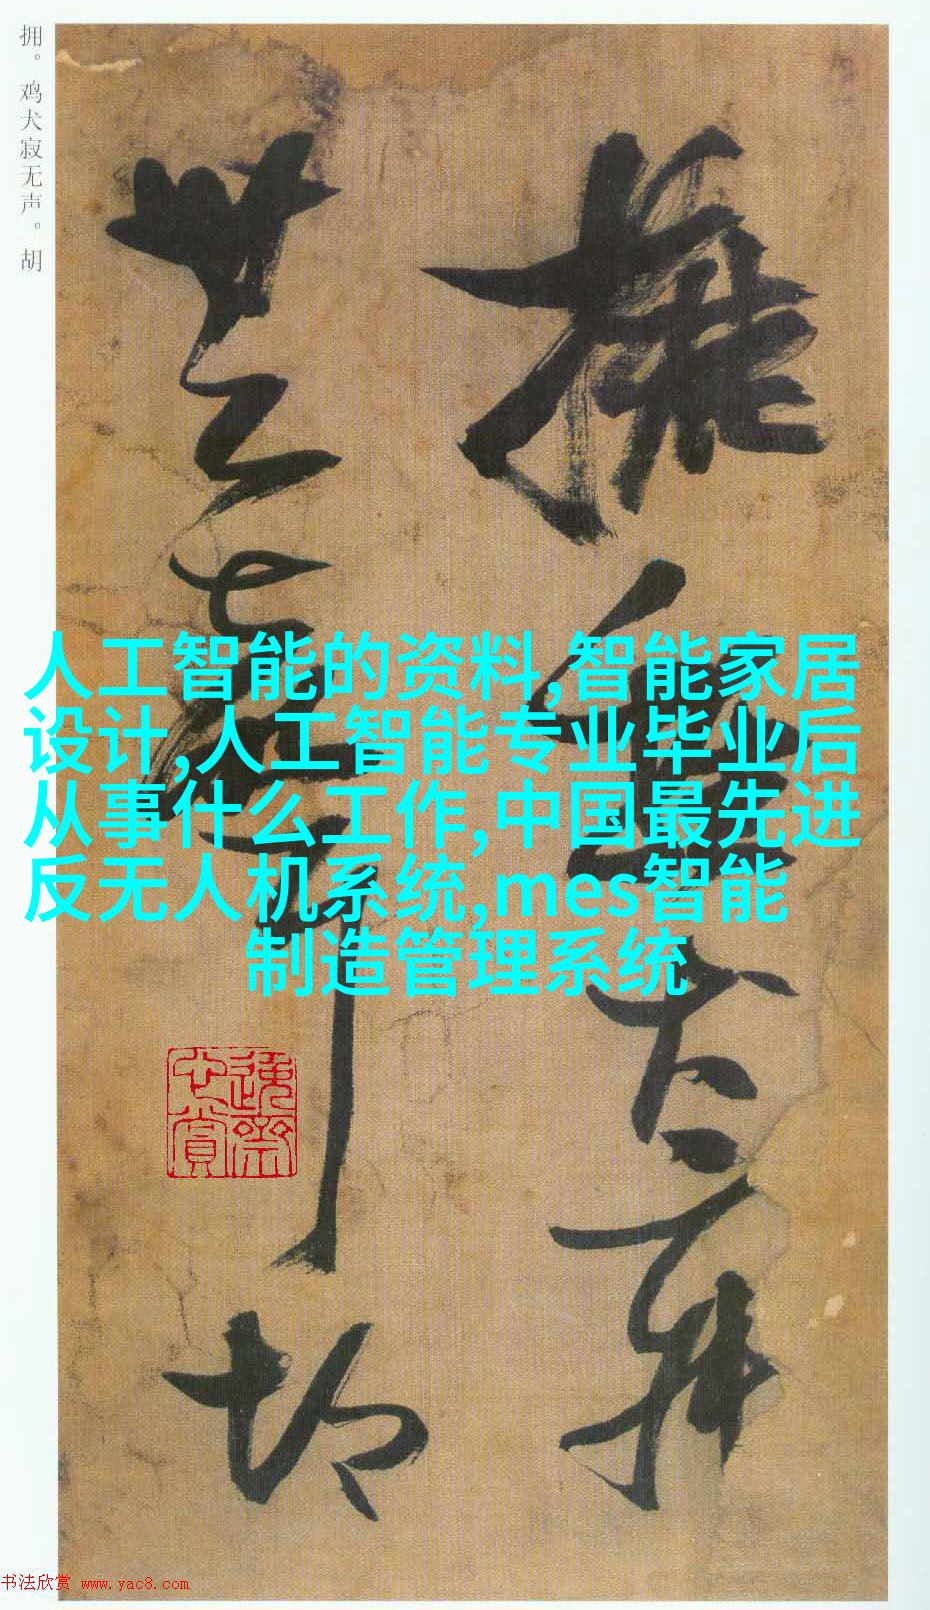 擁雞犬寂
無聲胡
拥。鸡犬寂无声。胡
人工智能的资料,智能家居
设计,人工智能专业毕业后
从事什么工作,中国最先进
反无人机系统,mes智能
制造管理系统
书法欣赏 www.yac8.com